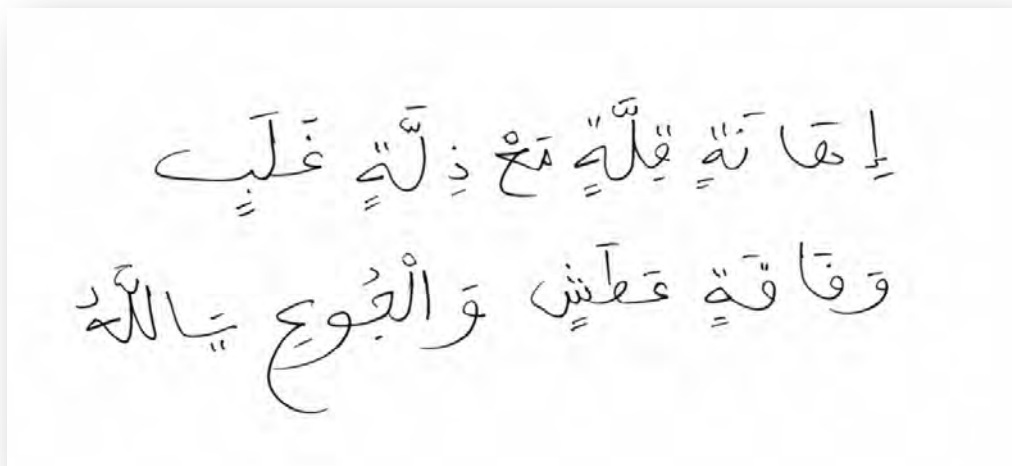 إِهَانَةٍ قِلَّةٍ مَعْ ذِلَّةٍ غَلَبٍ
وَفَاقَةٍ عَطَشٍ وَالْجُوعِ يَااللَّهُ